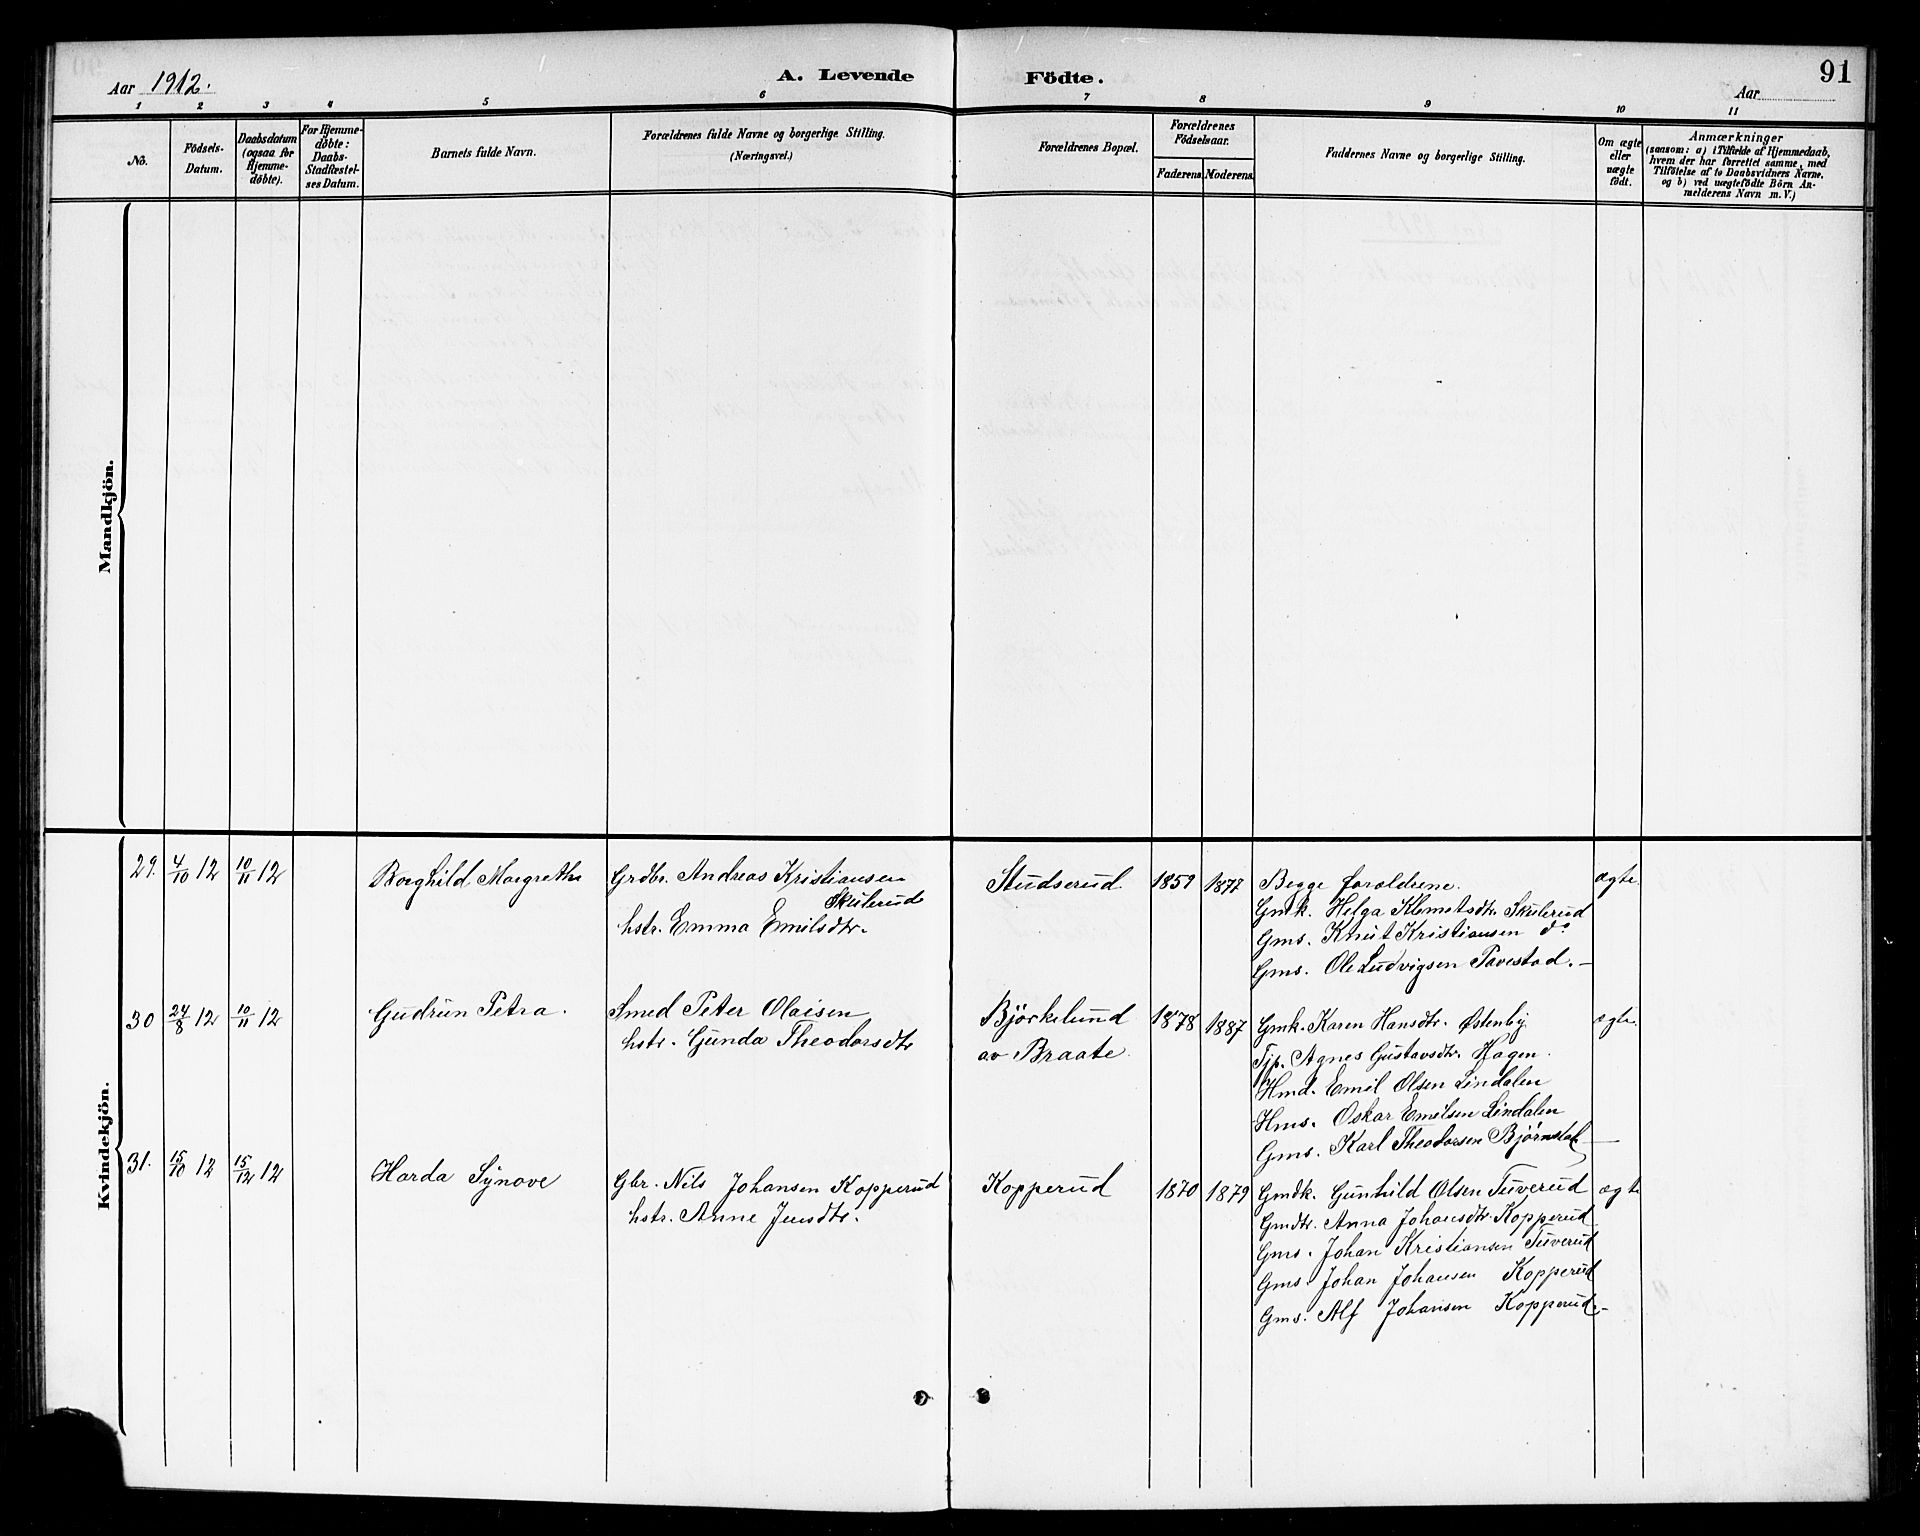 Aar 1912.
A. Levende Födte.
91
Aar
1 2 3 4 5 6 7 8 9 10 11
No.
Födsels-Datum.
Daabsdatum (ogsaa for Hjemme-döbte).
For Hjemme-döbte: Daabs-Stadfæstel-ses Datum.
Barnets fulde Navn.
Forældrenes fulde Navne og borgerlige Stilling. (Næringsvei.)
Forældrenes Bopæl.
Forældrenes Födselsaar.
Faderens.
Moderens.
Faddernes Navne og borgerlige Stilling.
Om ægte eller uægte födt.
Anmærkninger
(saasom: a) i Tilfælde af Hjemmedaab,
hvem der har forrettet samme, med
Tilföielse af to Daabsvidners Navne,
og b) ved uægtefödte Börn An-
melderens Navn m. V.)
Mandkjön.
Kvindekjön.
29. 4/10 12 10/11 12 Borghild Margrethe Grdbr. Andreas Kristiansen Studserud 1859 1877 Begge forældrene. ægte
Skulerud
Gmk. Helga Klemetsdtr. Skulerud
hstr. Emma Emilsdtr.
Gms. Knut Kristiansen do
Gms. Ole Ludvigsen Tavestad. —
30 24/8 12 10/11 12 Gudrun Petra. Smed Peter Olaisen Björkelund 1878 1887 Gmk. Karen Hansdtr. Østenby ægte
hstr. Gunda Theodorsdtr av Braate. Tjp. Agnes Gustavsdtr. Hagen.
Hmd. Emil Olsen Lindalen
Hms. Oskar Emilsen Lindalen
Gms. Karl Theodorsen Bjørnstad —
31. 15/10 12 15/12 12 Harda Synove Gbr. Nils Johansen Kopperud Kopperud 1870 1879 Gmdk. Gunhild Olsen Tuverud ægte
hstr. Anne Jensdtr. Gmdtr. Anna Johansdtr. Kopperud
Gms. Johan Kristiansen Tuverud
Gms. Johan Johansen Kopperud
Gms. Alf Johansen Kopperud —